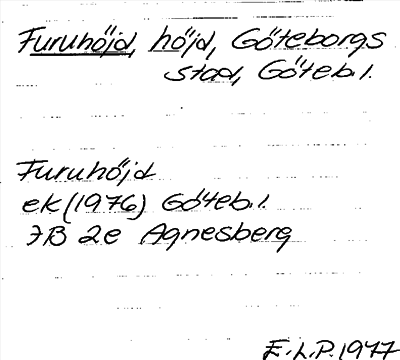 Furuhöjd, höjd, Göteborgs
stad, Göteb.l.
Furuhöjd
ek (1976) Göteb.l.
7B 2e Agnesberg
E.L.P. 1977